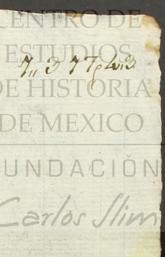 CENTRO DE
ESTUDIOS
DE HISTORIA
DE MEXICO
FUNDACIÓN
Carlos Slim